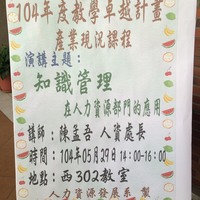 104年度教學卓越計畫
產業現況課程
演講主題：
知識管理
在人力資源部門的應用
講師：陳孟吾 人資處長
時間：104年05月29日14:00-16:00
地點：西302教室
人力資源發展系 製